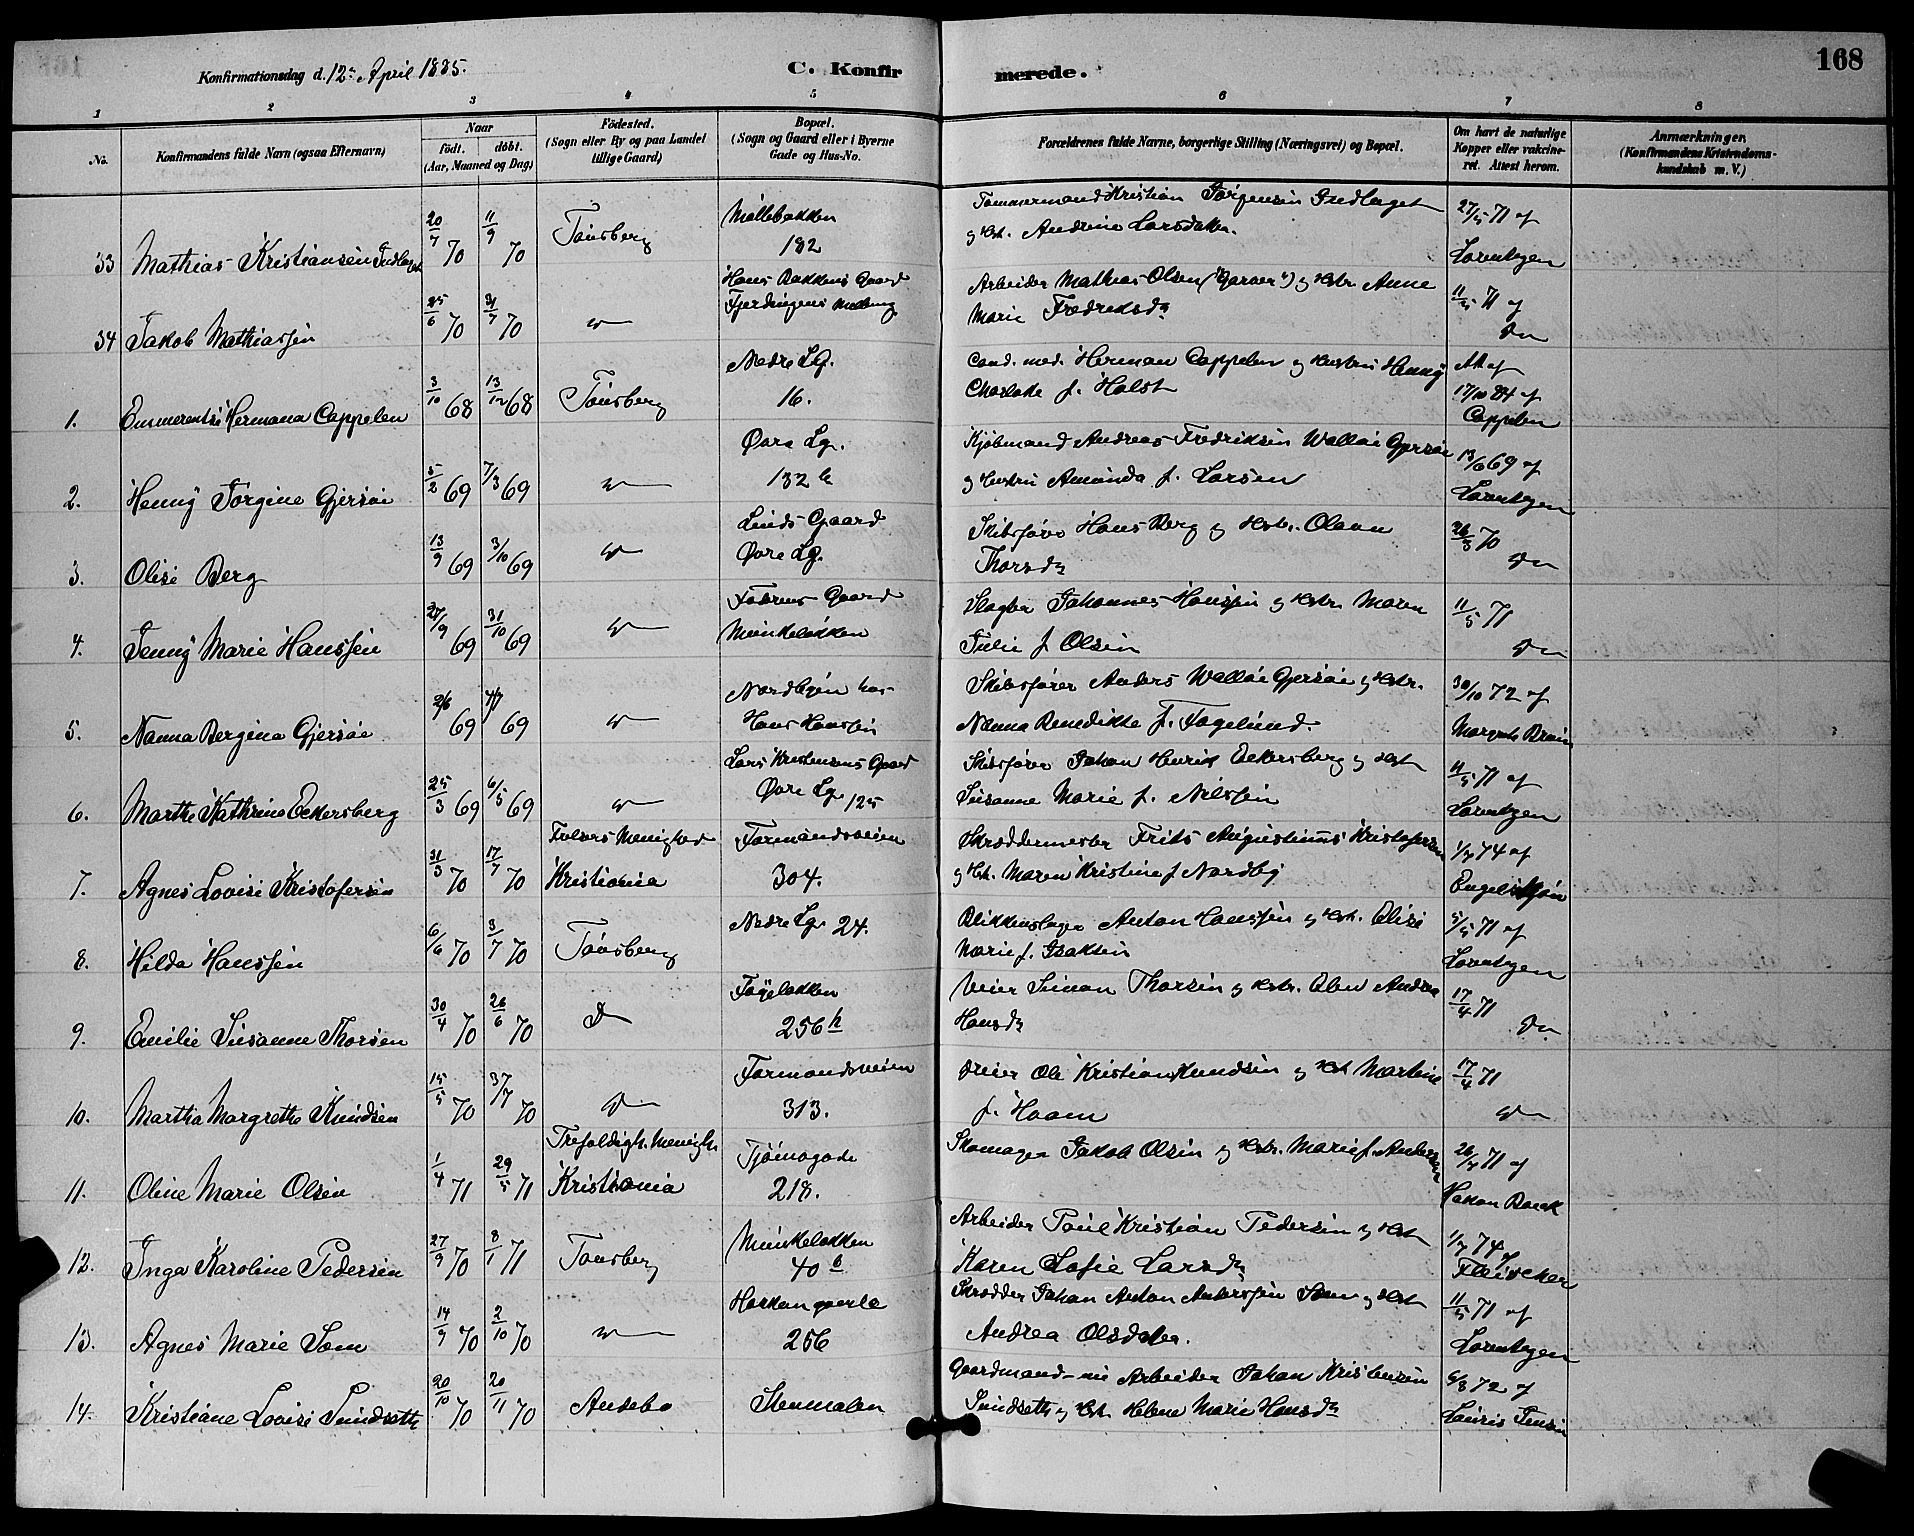 168
Konfirmationsdag d. 12te April 1885.
C. Konfirmerede.
1 2 3 4 5 6 7 8
No.
Konfirmandens fulde Navn (ogsaa Efternavn)
Naar
födt. döbt.
(Aar, Maaned og Dag)
Födested.
(Sogn eller By og paa Landet
tillige Gaard)
Bopæl.
(Sogn og Gaard eller i Byerne
Gade og Hus-No.
Forældrenes fulde Navne, borgerlige Stilling (Næringsvei) og Bopæl.
Om havt de naturlige
Kopper eller vakcine-
ret. Attest herom.
Anmærkninger,
(Konfirmandens Kristendoms-
kundskab m. V.)
33 Mathias Kristiansen 20/7 70 11/9 70 Tönsberg
Möllebakken
182
Tømmermand Kristian Jörgensen
og Hst. Andrine Larsdatter.
27/5 71 af
Lorentzen
34 Jakob Mathiassen 25/6 70 31/7 70
Hans Bakkens Gaard
Arbeider Mathias Olsen og Hstr. Anne
Marie Fredriksd.
11/5 71 af
Do
1. Emmerentse Hermana Cappelen 3/10 68 13/12 68 Tönsberg
Nedre Lg.
16.
Cand. med. Herman Cappelen og Hustru Henny
Charlotte f. Holst
Att af
17/10 84 af
Cappelen
2. Henny Jörgine Gjersöe 5/2 69 7/3 69
Övre Lg.
132 b
Kjöbmand Andreas Fredriksen Wallöe Gjersöe
og Hustru Amanda f. Larsen
69 af
Lorentzen
3. Olise Berg 13/9 69 3/10 69
Linds Gaard
Övre Lg.
Skibsförer Hans Berg og Hstr. Olava
Thorsd
26/3 70
Do
4. Jenny Marie Hanssen 27/9 69 31/10 69
Gaard
Munkeløkken
Slagter Johannes Hanssen og Hstr. Maren
Julie f Olsen
11/5 71
Do
5. Nanna Bergina Gjersöe 2/6 69 4/7 69
Nordbyen hos
Hans Hanssen
Skibsförer Anders Wallöe Gjersöe og Hstr.
Nanna Benedikte f. Fogelund.
30/10 72 af
6. Marthe Kathrine Eckersberg 25/3 69 6/5 69
Lars Kristensens Gaard
Övre Lg. 125
Skibsförer Johan Henrik Eckersberg og Hst
Susanne Marie f. Nilssen
11/5 71 af
Lorentzen
7. Agnes Lovise Kristofersen 31/3 70 17/7 70
Menighed
Kristiania
Formandsveien
304.
Skræddermester Frits Augustinus Kristofersen
og Hst. Maren Kristine f Nordby
1/7 74 af
8. Hilda Hanssen 6/6 70 3/7 70 Tönsberg
Nedre Lg. 24.
Blikkenslager Anton Hanssen og Hst. Elise
Marie f. Isaksen
5/5 71 af
Lorentzen
9. Emilie Susanne Thorsen 30/4 70 26/6 70 Do
Föyeløkken
256 h
Veier Simon Thorsen og Hstr. Olava Andrea
Hansd
17/4 71
Do
10. Martha Margrethe Knudsen 15/5 70 3/7 70 Do
Formandsveien
313.
Dreier Ole Kristian Knudsen og Hst Martine
f. Hoam
17/4 71
Do
11. Oline Marie Olsen 1/4 71 29/5 71
Trefoldigh. Menigh.
Kristiania
Tjömøgade
218.
Skomager Jakob Olsen og Hstr. Marie f. Andersen
26/7 71 af
12. Inga Karoline Pedersen 27/9 70 8/1 71 Tönsberg
Munkeløkken
40 b
Arbeider Poul Kristian Pedersen og Hst
Karen Sofie Larsd
1/7 74 af
Fleischer
13. Agnes Marie Som 14/9 70 2/10 70
256
Skrædder Johan Anton Anderssen Som og Hst
Andrea Olsdatter.
11/5 71 af
Lorentzen
14. Kristiane Lovise Sundseth 20/10 70 20/11 70 Andebo
Stenmalen
Gaardmand nu Arbeider Johan Kristensen
Sundseth og Hst. Helene Marie Hansd
6/8 72 af
Lauris Jensen